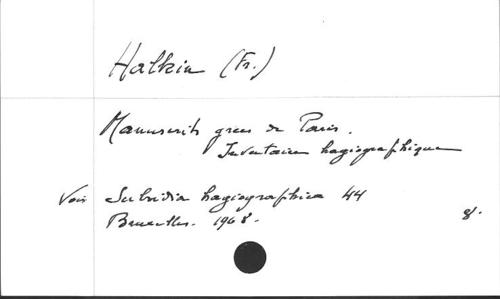 Halkin (Fr.)
Manuscrits grecs de Paris.
Inventaire hagiographique
Voir Subsidia hagiographica 44
Bruxelles. 1968. 8°.